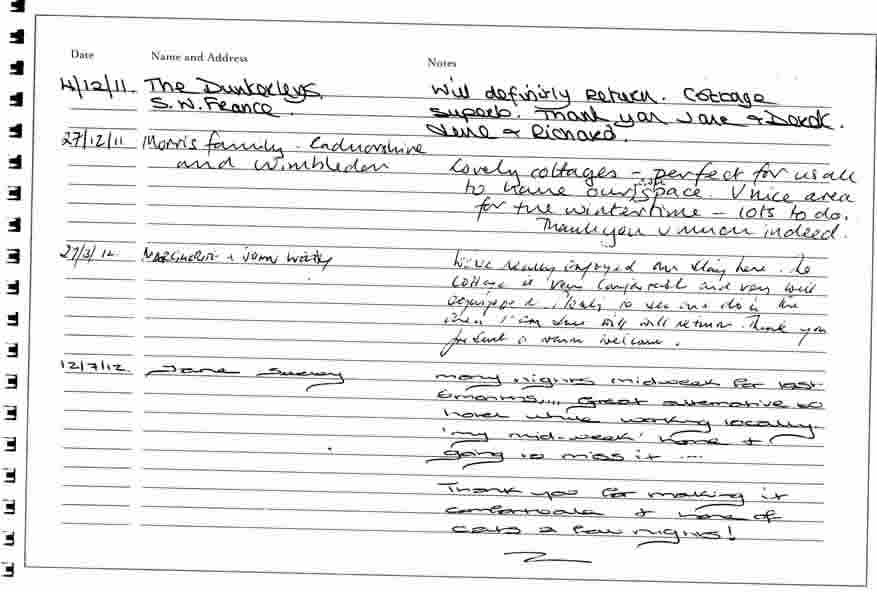 Date Name and Address Notes
4/12/11. The Dunkerleys Will definitly return. Cottage
S.W. France. superb. Thank you Jane & Derek.
& Richard.
27/12/11 Morris family -
and Wimbledon Lovely cottages - perfect for us all
to have our own space. V nice area
for the wintertime - lots to do.
Thank you v much indeed.
27/3/12 & John We've really enjoyed our stay here. The
cottage is very comfortable and very well
equipped. to see and do in the
area. I am sure will return. Thank you
for such a warm welcome.
12/7/12. Jane many nights midweek for last
6 months.... great alternative to
hotel while working locally.
'my mid-week' home &
going to miss it ...
Thank you for making it
comfortable & home of
a few nights!